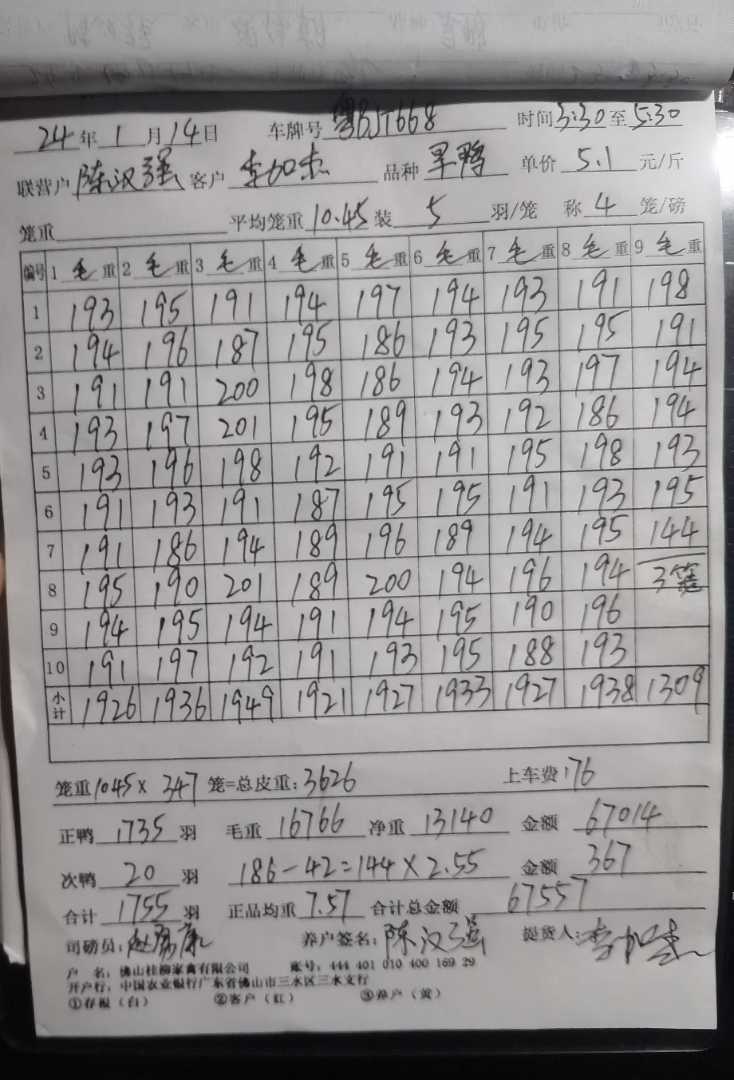 24年1月14日 车牌号 粤BJT668 时间3:30至5:30
联营户 陈汉强 客户 李加杰 品种 旱鸭 单价 5.1 元/斤
笼重 平均笼重10.45装 5 羽/笼 称 4 笼/磅
编号 1 毛重 2 毛重 3 毛重 4 毛重 5 毛重 6 毛重 7 毛重 8 毛重 9 毛重
1 193 195 191 194 197 194 193 191 198
2 194 196 187 195 186 193 195 195 191
3 191 191 200 198 186 194 193 197 194
4 193 197 201 195 189 193 192 186 194
5 193 196 198 192 191 191 195 198 193
6 191 193 191 187 195 195 191 193 195
7 191 186 194 189 196 189 194 195 144
8 195 190 201 189 200 194 196 194 3笼
9 194 195 194 191 194 195 190 196
10 191 197 192 191 193 195 188 193
小计 1926 1936 1949 1921 1927 1933 1927 1938 1309
笼重1045× 347 笼=总皮重:3626 上车费:176
正鸭 1735 羽 毛重 16766 净重 13140 金额 67014
次鸭 20 羽 186-42=144×2.55 金额 367
合计 1755 羽 正品均重 7.57 合计总金额 67557
司磅员: 养户签名: 陈汉强 提货人: 李加杰
户 名: 佛山桂柳家禽有限公司 账号: 444 401 010 400 169 29
开户行: 中国农业银行广东省佛山市三水区三水支行
①存根(白) ②客户(红) ③养户(黄)